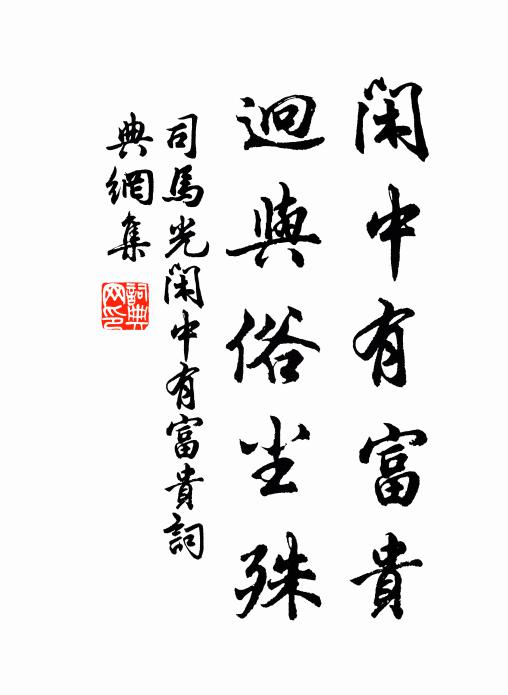 閑中有富貴
迥與俗尘殊
司馬光閑中有富貴詞
典網集
詞典
网印